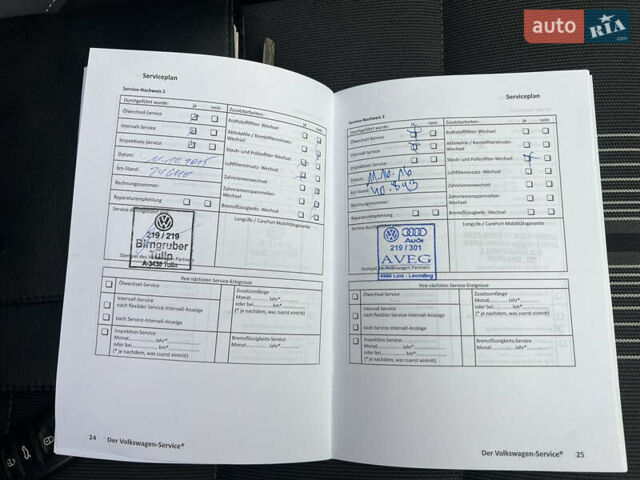 auto RIA .com
Serviceplan
Service-Nachweis 2
Durchgeführt wurde: ja nein Zusatzarbeiten: ja nein
Ölwechsel-Service Kraftstofffilter-Wechsel
Intervall-Service Aktivkohle / Kombifiltereinsatz-Wechsel
Inspektions-Service Staub- und Pollenfilter-Wechsel
Datum: 11.12.2015 Luftfiltereinsatz-Wechsel
km-Stand: Zahnriemenwechsel
Rechnungsnummer: Zahnriemenspannrollen-Wechsel
Reparaturempfehlung Bremsflüssigkeits-Wechsel
LongLife / CarePort Mobilitätsgarantie
219 / 219
Birngruber
Tulln
A-3430 Tulln
Stempel des Partners
Ihre nächsten Service-Ereignisse
Ölwechsel-Service Zusatzumfänge
Monat Jahr*
Intervall-Service oder bei km*
nach flexibler Service-Intervall-Anzeige (* je nachdem, was zuerst eintritt)
nach Service-Intervall-Anzeige
Inspektion-Service Bremsflüssigkeits-Service
Monat Jahr* Monat Jahr*
oder bei km*
(* je nachdem, was zuerst eintritt)
24 Der Volkswagen-Service®
Serviceplan
Service-Nachweis 3
Durchgeführt wurde: ja nein Zusatzarbeiten: ja nein
Ölwechsel-Service Kraftstofffilter-Wechsel
Intervall-Service Aktivkohle / Kombifiltereinsatz-Wechsel
Inspektions-Service Staub- und Pollenfilter-Wechsel
Datum: 11.10.16 Luftfiltereinsatz-Wechsel
km-Stand: 40.843 Zahnriemenwechsel
Rechnungsnummer: Zahnriemenspannrollen-Wechsel
Reparaturempfehlung Bremsflüssigkeits-Wechsel
LongLife / CarePort Mobilitätsgarantie
Audi
219 / 301
AVEG
4060 Linz - Leonding
Stempel des Volkswagen Partners
Ihre nächsten Service-Ereignisse
Ölwechsel-Service Zusatzumfänge
Monat Jahr*
Intervall-Service oder bei km*
nach flexibler Service-Intervall-Anzeige (* je nachdem, was zuerst eintritt)
nach Service-Intervall-Anzeige
Inspektion-Service Bremsflüssigkeits-Service
Monat Jahr* Monat Jahr*
oder bei km*
(* je nachdem, was zuerst eintritt)
Der Volkswagen-Service® 25